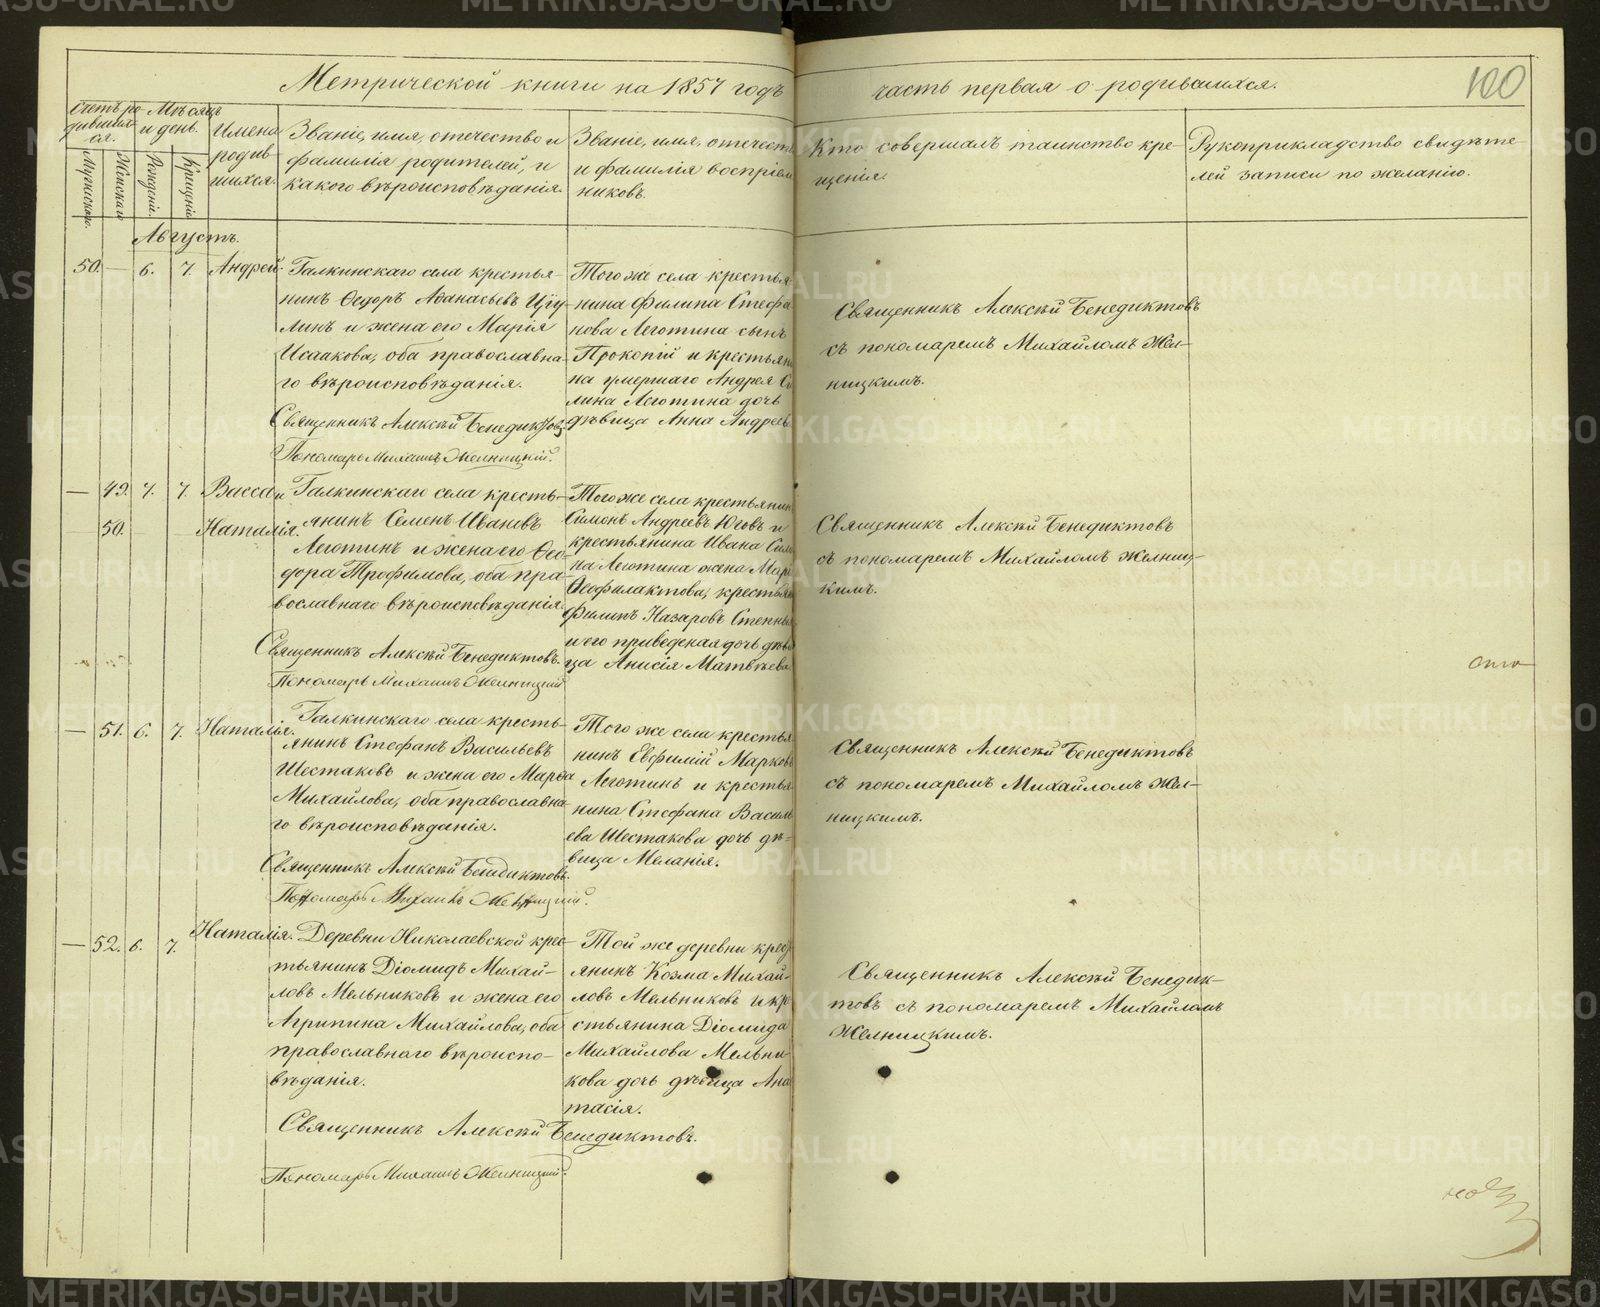 Метрической книги на 1857 годъ
часть первая о родившихся.
100
Счетъ ро-
дивших-
ся.
Мѣсяцъ
и день.
Мужескаго.
Женскаго
Рожденiе.
Крещенiе
Имена
родив-
шихся.
Званiе, имя, отечество и
фамилiя родителей, и
какого вѣроисповѣданiя.
Званiе, имя, отечеств
и фамилiя воспрiем
никовъ.
Кто совершалъ таинство кре-
щенiя.
Рукоприкладство свидѣте-
лей записи по желанiю.
Августъ.
50. — 6. 7. Андрей.
Галкинскаго села крестья-
нинъ Ѳедоръ Аѳанасьевъ
линъ и жена его Марiя
Исаакова, оба православна-
го вѣроисповѣданiя.
Священникъ Алексѣй Бенедиктовъ
Пономарь Михаилъ Желницкiй.
Того же села крестья
нина Филипа Стефа
нова Леготина сынъ
Прокопiй и крестьян
на умершаго Андрея Си
лина Леготина дочь
дѣвица Анна Андреев
Священникъ Алексѣй Бенедиктовъ
съ пономаремъ Михайломъ Жел-
ницкимъ.
— 49. 7. 7. Васса и
50. Наталiя.
Галкинскаго села кресть-
янинъ Семенъ Ивановъ
Леготинъ и жена его Ѳео-
дора Трофимова, оба пра-
вославнаго вѣроисповѣданiя.
Священникъ Алексѣй Бенедиктовъ.
Пономарь Михаилъ Желницкiй
Того же села крестьянин
Симонъ Андреевъ Юговъ и
крестьянина Ивана Сили
на Леготина жена Марi
Ѳеофилактова, крестьян
Филипъ Назаровъ Степны
и его приведеная дочь дѣви
ца Анисiя Матвѣева
Священникъ Алексѣй Бенедиктовъ
съ пономаремъ Михайломъ Желниц-
кимъ.
— 51. 6. 7. Наталiя.
Галкинскаго села кресть-
янинъ Стефанъ Васильевъ
Шестаковъ и жена его Марѳа
Михайлова, оба православна-
го вѣроисповѣданiя.
Священникъ Алексѣй Бенедиктовъ.
Пономарь Михаилъ Желницкiй.
Того же села крестья
нинъ Евфимiй Марковъ
Леготинъ и крестья
нина Стефана Василь
ева Шестакова дочь дѣ-
вица Меланiя.
Священникъ Алексѣй Бенедиктовъ
съ пономаремъ Михайломъ Жел-
ницкимъ.
— 52. 6. 7. Наталiя.
Деревни Николаевской крес-
тьянинъ Дiомидъ Михай-
ловъ Мельниковъ и жена его
Агрипина Михайлова, оба
православнаго вѣроиспо-
вѣданiя.
Священникъ Алексѣй Бенедиктовъ.
Пономарь Михаилъ Желницкiй.
Той же деревни крест
янинъ Козма Михай-
ловъ Мельниковъ и кр
стьянина Дiомида
Михайлова Мельни
кова дочь дѣвица Ана
тасiя.
Священникъ Алексѣй Бенедик-
товъ съ пономаремъ Михайломъ
Желницкимъ.
METRIKI.GASO-URAL.RU